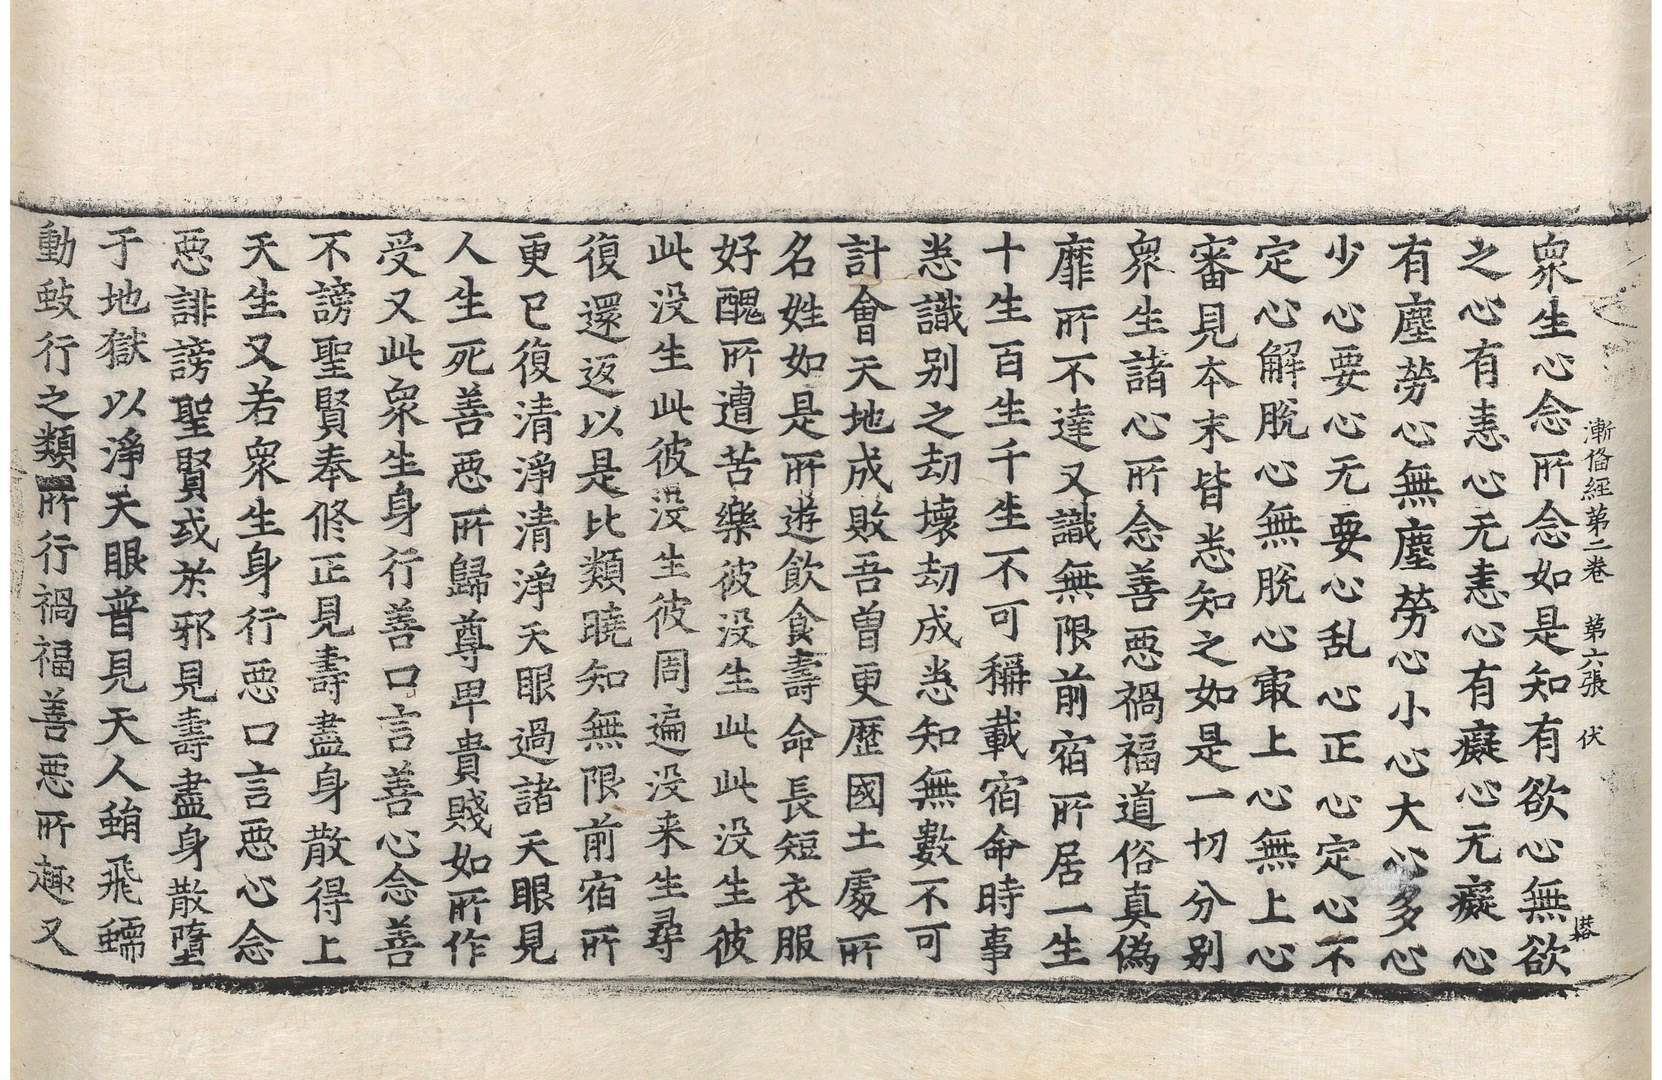 漸俻經第二卷　第六張　伏
衆生心念所念如是知有欲心無欲
之心有恚心无恚心有癡心无癡心
有塵勞心無塵勞心小心大心多心
少心要心无要心乱心正心定心不
定心解脫心無脫心㝡上心無上心
審見本末皆悉知之如是一切分别
衆生諸心所念善惡禍福道俗真偽
靡所不達又識無限前宿所居一生
十生百生千生不可稱載宿命時事
悉識别之劫壞劫成悉知無數不可
計會天地成敗吾曾更歷國土處所
名姓如是所遊飲食壽命長短衣服
好醜所遭苦樂彼没生此此没生彼
此没生此彼没生彼周遍没来生尋
復還返以是比類曉知無限前宿所
更已復清淨清淨天眼過諸天眼見
人生死善惡所歸尊卑貴賤如所作
受又此衆生身行善口言善心念善
不謗聖賢奉修正見壽盡身散得上
天生又若衆生身行惡口言惡心念
惡誹謗聖賢或於邪見壽盡身散墮
于地獄以淨天眼普見天人蜎飛蠕
動蚑行之類所行禍福善惡所趣又